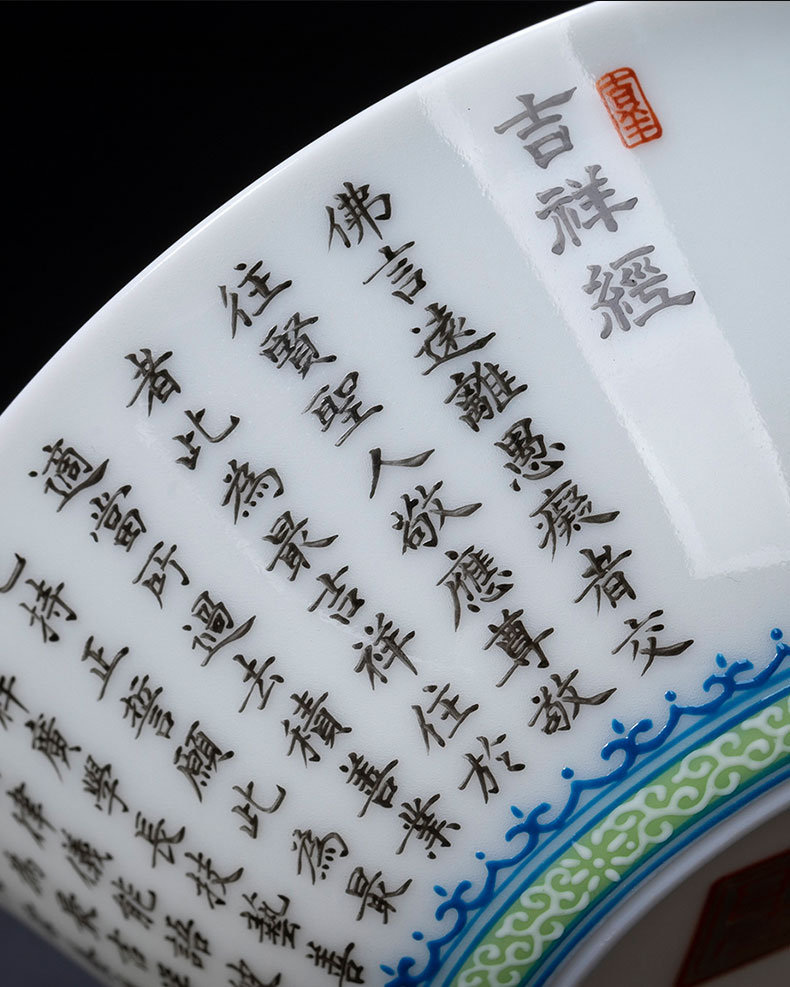 吉祥經
佛言遠離愚癡者交
往賢聖人敬應尊敬
者此為最吉祥住於
適當所過去積善業
持正誓願此為最
祥廣學長技藝善
律儀能語
為最吉